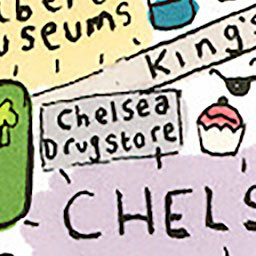 useums
King's
Chelsea
Drugstore
CHELS